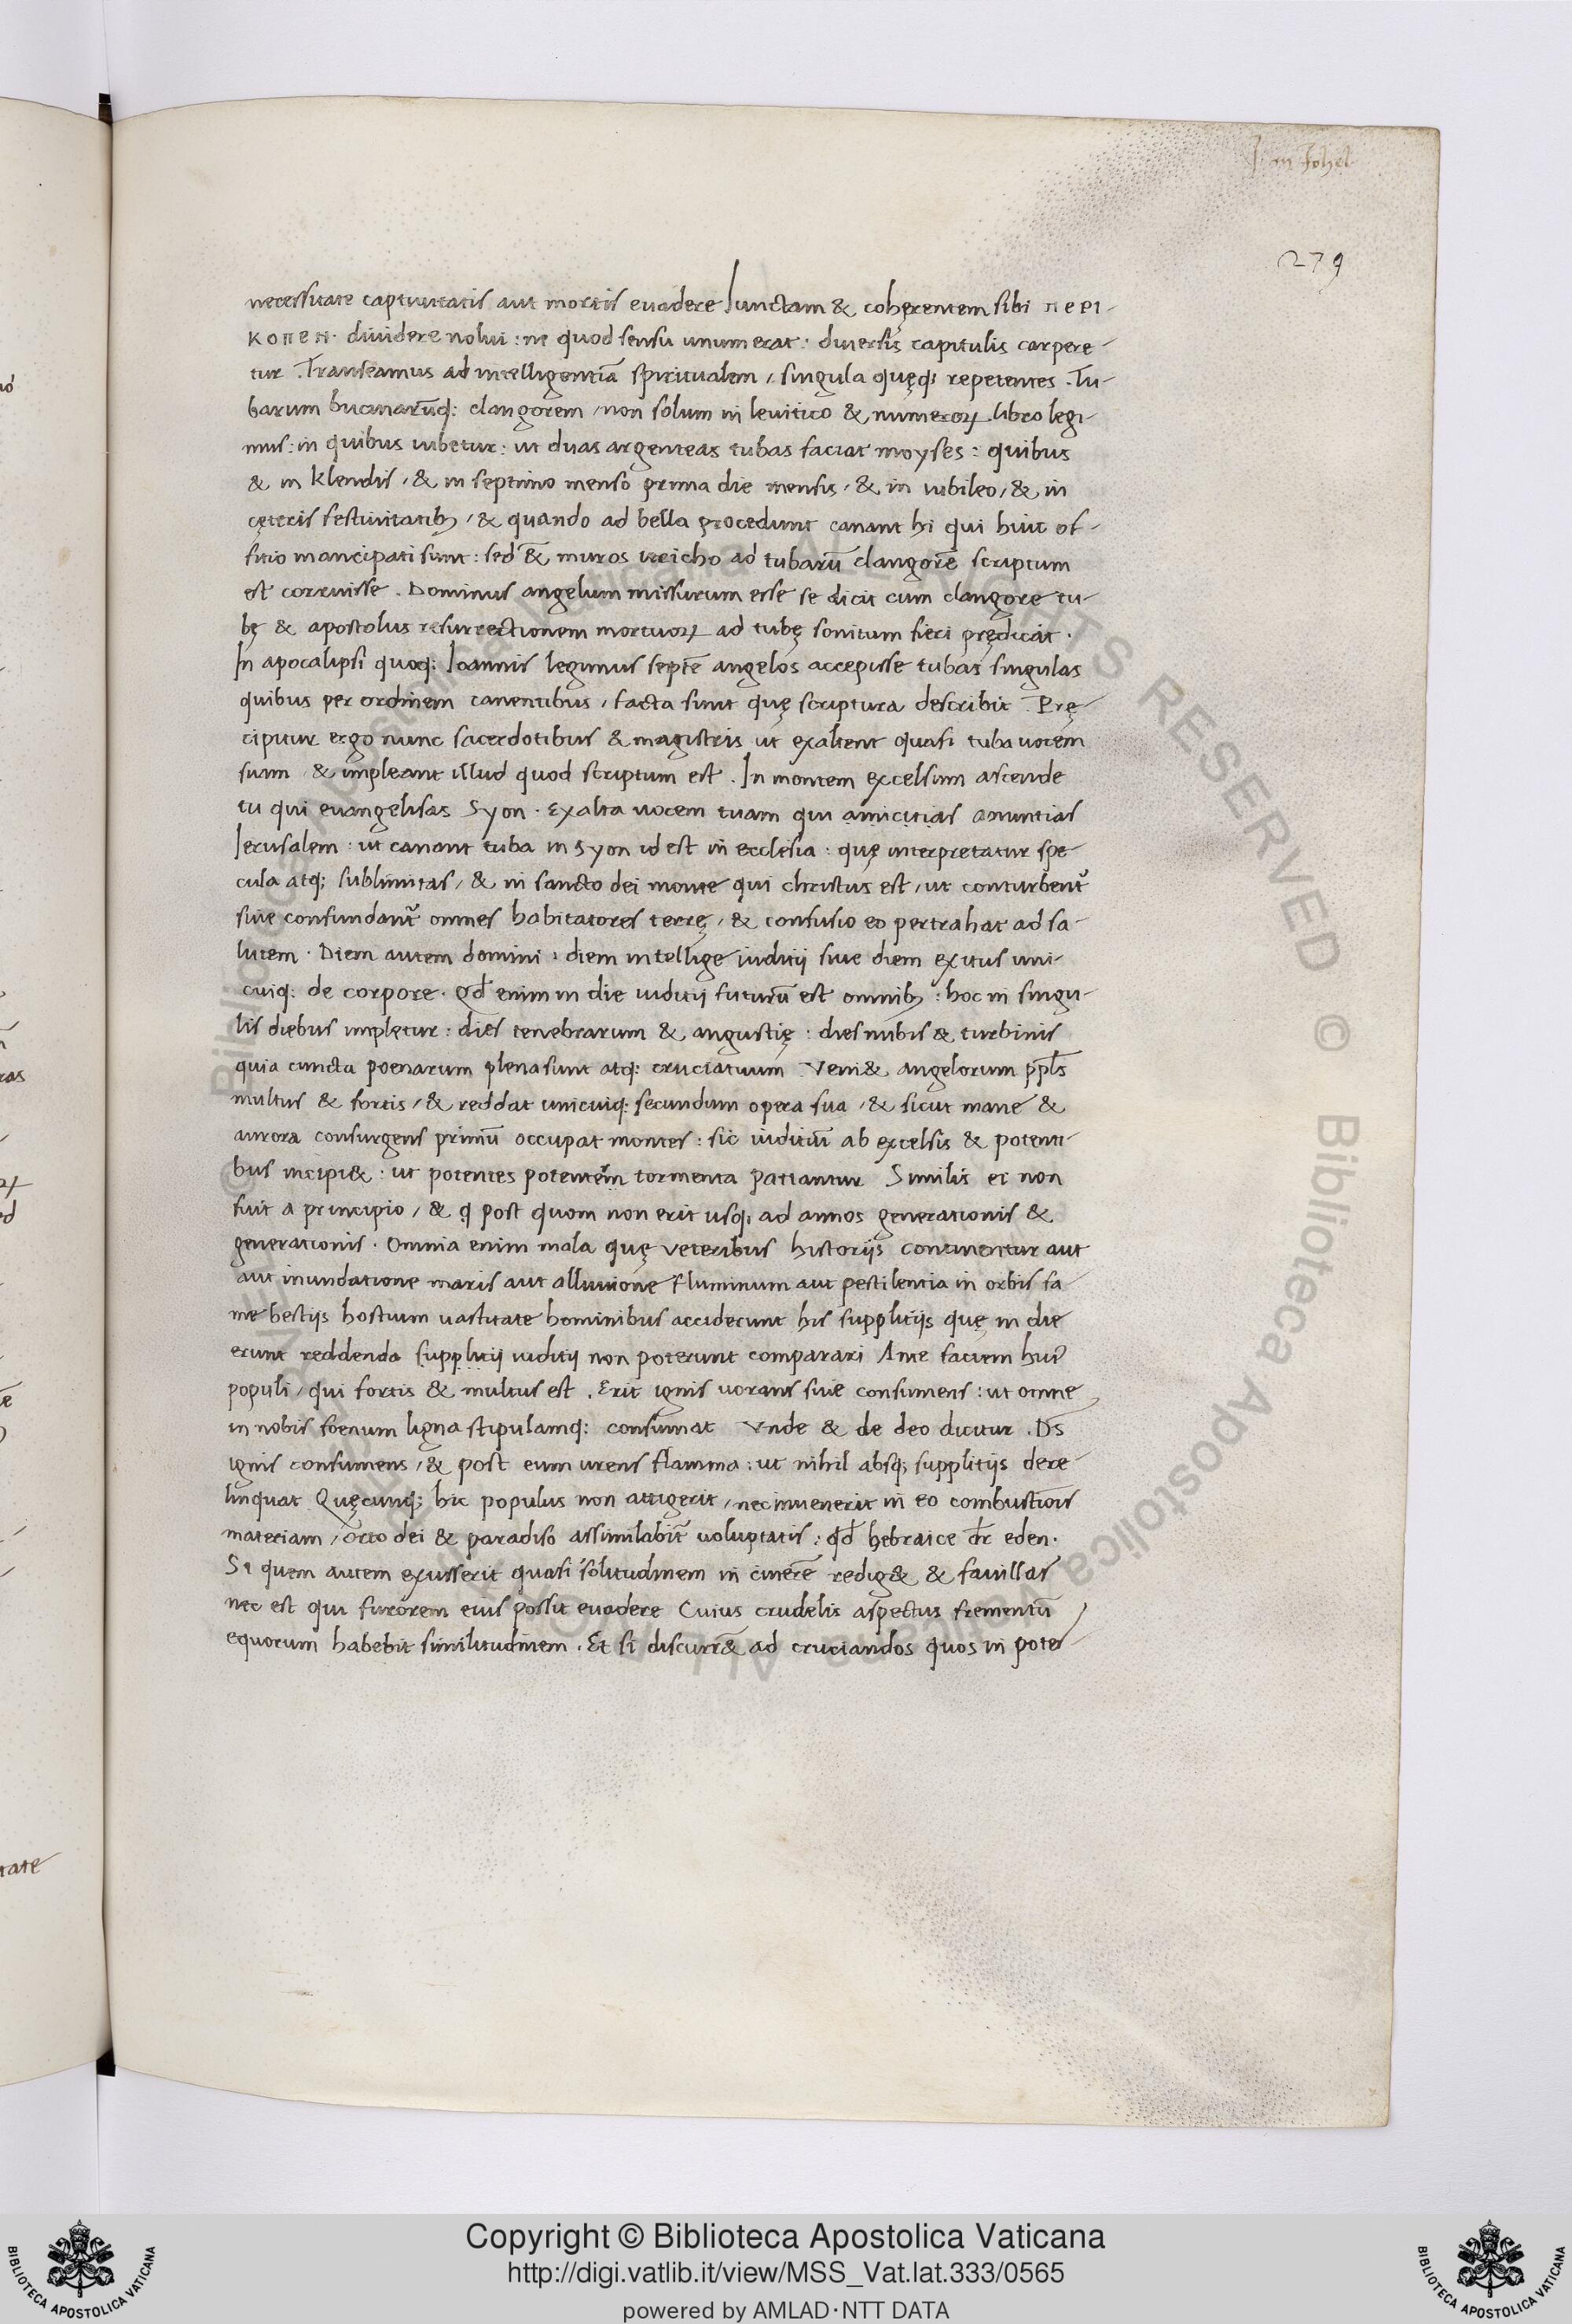 J. in Johel
279
necessitate captiuitatis aut mortis euadere Iunctam & cohęrentem sibi περι-
κοπεn. diuidere nolui: ne quod sensu unum erat: diuersis capitulis carpere-
tur. Transeamus ad intelligentiā spiritualem, singula quęq; repetentes. Tu-
barum bucinarūq: clangorem, non solum in leuitico & numeroꝝ libro legi-
mus: in quibus iubetur: ut duas argenteas tubas faciat moyses: quibus
& in Klendis, & in septimo menso prima die mensis, & in iubileo, & in
cęteris festiuitatibꝫ, & quando ad bella procedunt canant hi qui huic of-
fitio mancipati sunt: sed & muros iericho ad tubarū clangorē scriptum
est corruisse. Dominus angelum missurum esse se dicit cum clangore tu-
bę & apostolus resurrectionem mortuoꝝ ad tubę sonitum fieri prędicat.
In apocalipsi quoq: Ioannis legimus septē angelos accepisse tubas singulas
quibus per ordinem canentibus, facta sunt quę scriptura describit. Prę-
cipitur ergo nunc sacerdotibus & magistris ut exaltent quasi tuba uocem
suam & impleant illud quod scriptum est. In montem excelsum ascende
tu qui euangelisas Syon. Exalta uocem tuam qui amicitias anuntias
Ierusalem: ut canant tuba in Syon id est in ecclesia: quę interpretatur spe-
cula atq; sublimitas, & in sancto dei monte qui christus est, ut conturbent̄
siue confundant̄ omnes habitatores terrę, & confusio eo pertrahat ad sa-
lutem. Diem autem domini: diem intellige iuditij siue diem exitus uni-
cuiq: de corpore. Qđ enim in die iuditij futurū est omnibꝫ: hoc in singu-
lis diebus implętur: dies tenebrarum & angustię: dies nubis & turbinis
quia cuncta poenarum plena sunt atq: cruciatuum Veni& angelorum ppl̄s
multus & fortis, & reddat unicuiq: secundum opera sua, & sicut mane &
aurora consurgens primū occupat montes: sic iuditiū ab excelsis & potenti-
bus incipi&: ut potentes potentēin tormenta patiantur Similis ei non
fuit a principio, & q post quom non erit usq; ad annos generationis &
generationis. Omnia enim mala quę veteribus historijs continentur aut
aut inundatione maris aut alluuione fluminum aut pestilentia in orbis fa-
me bestijs hostium uastitate hominibus acciderunt his supplitijs quę in die
erunt reddenda supplitij iuditij non poterunt comparari Ante faciem huiꝰ
populi, qui fortis & multus est. Erit ignis uorans siue consumens: ut omne
in nobis foenum ligna stipulamq: consumat Vnde & de deo dicitur. Ds̄
ignis consumens, & post eum urens flamma: ut nihil absq; supplitijs dere-
linquat Quęcunq; hic populus non attigerit, nec inuenerit in eo combustiōis
materiam, orto dei & paradiso assimilabit̄ uoluptatis: qđ hebraice dr̄ eden.
Si quem autem exusserit quasi solitudinem in cinerē redig& & fauillas
nec est qui furorem eius possit euadere Cuius crudelis aspectus frementū
equorum habebit similitudinem. Et si discurr& ad cruciandos quos in pote-
tate
Copyright © Biblioteca Apostolica Vaticana
http://digi.vatlib.it/view/MSS_Vat.lat.333/0565
powered by AMLAD·NTT DATA
BIBLIOTECA APOSTOLICA VATICANA
BIBLIOTECA APOSTOLICA VATICANA